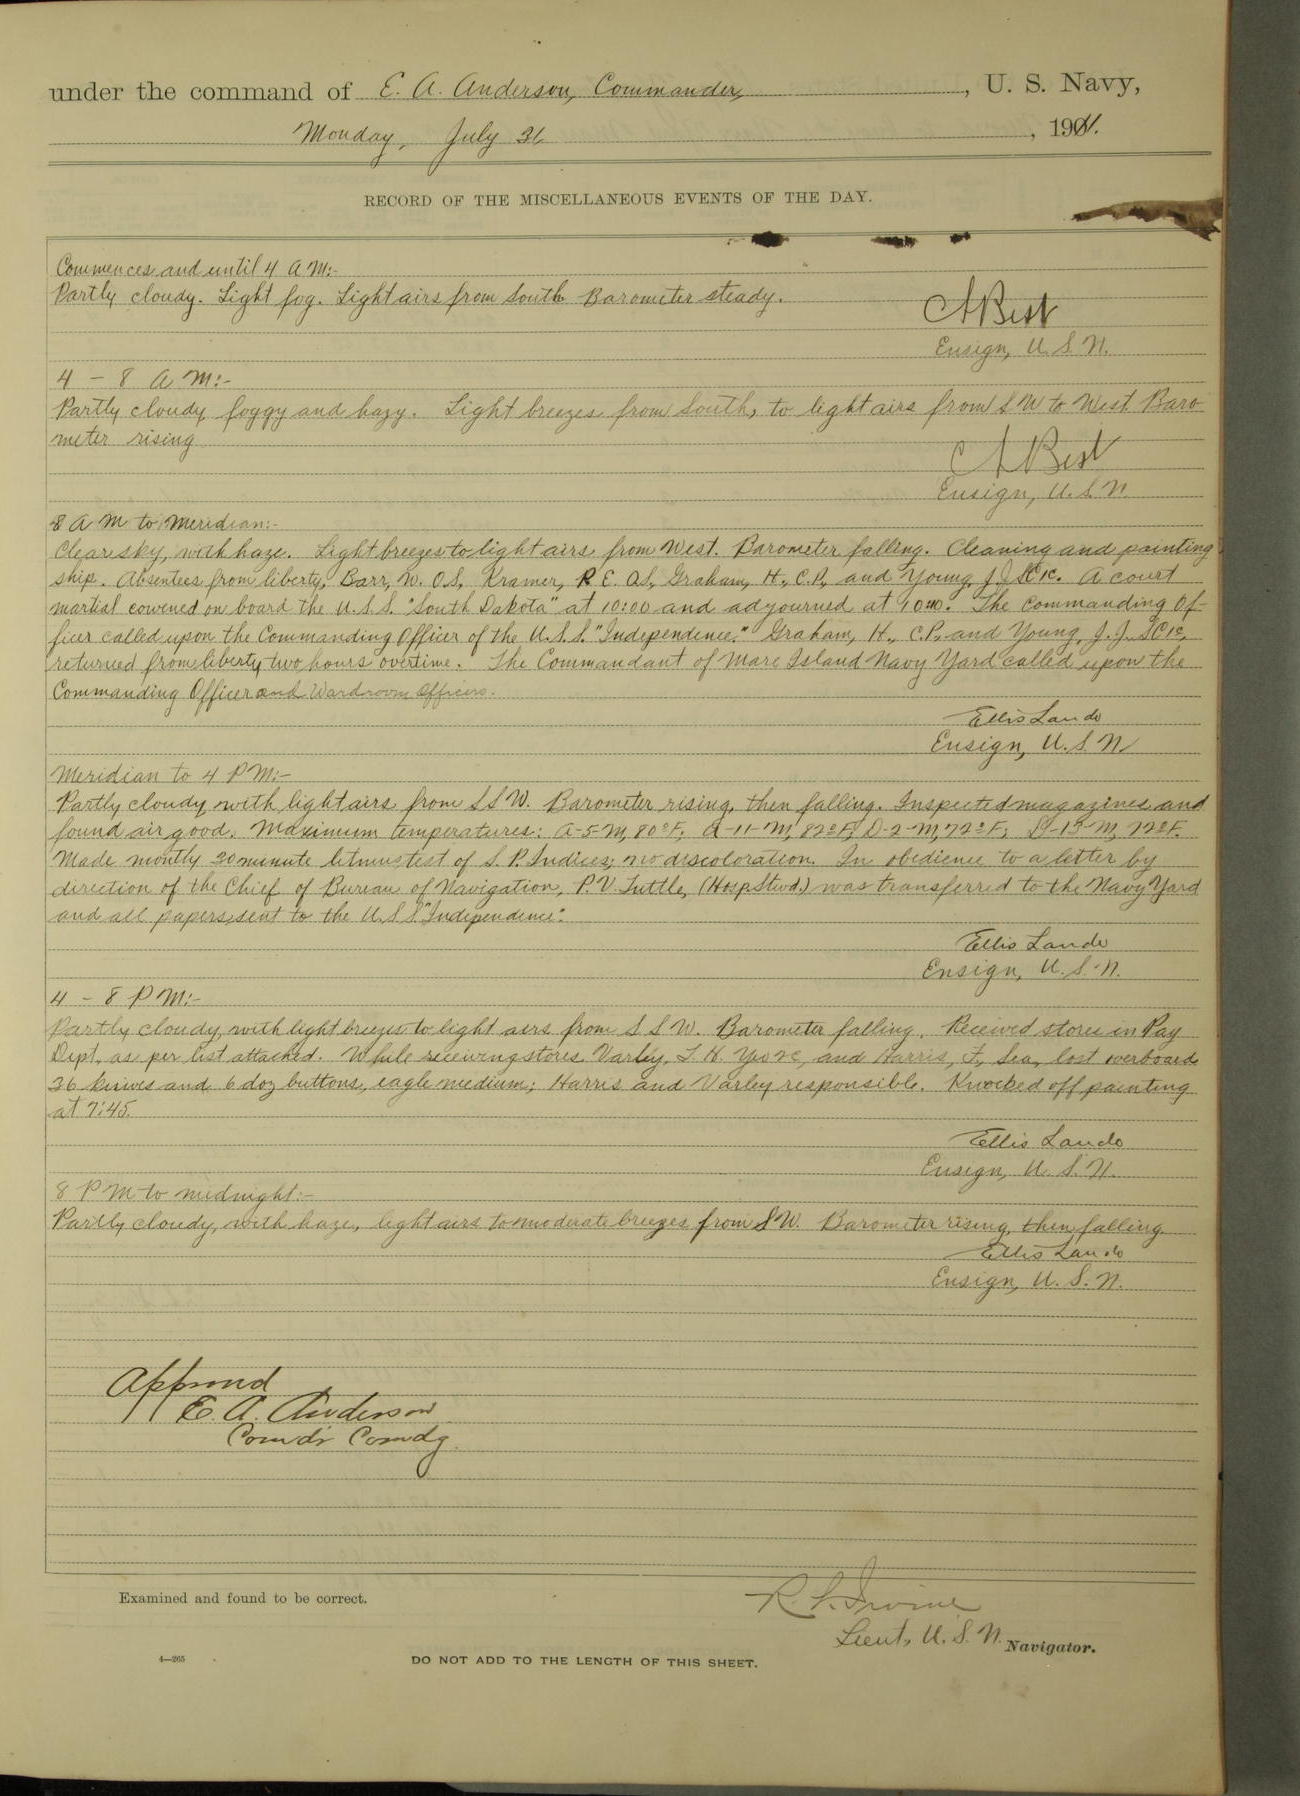 under the command of E. A. Anderson, Commander, , U. S. Navy,
Monday, July 31 , 1911.
RECORD OF THE MISCELLANEOUS EVENTS OF THE DAY.
Commences and until 4 A M:-
Partly cloudy. Light fog. Light airs from South Barometer steady.
C A Best
Ensign, U. S. N.
4 - 8 A M:-
Partly cloudy foggy and hazy. Light breezes from South, to light airs from S W to West. Baro-
meter rising
C A Best
Ensign, U. S. N.
8 A M to Meridian:-
Clear sky, with haze. Light breezes to light airs from West. Barometer falling. Cleaning and painting
ship. Absentees from liberty; Barr, W. O.S., Kramer, R E. O.S., Graham, H., C.P., and Young, J. J. SC1c. A court
martial convened on board the U. S. S. "South Dakota" at 10:00 and adjourned at 10:40. The Commanding Of-
ficer called upon the Commanding Officer of the U. S. S. "Independence." Graham, H., C.P., and Young, J. J. SC1c,
returned from liberty two hours overtime. The Commandant of Mare Island Navy Yard called upon the
Commanding Officer and Wardroom Officers.
Ellis Lando
Ensign, U. S. N
Meridian to 4 P M:-
Partly cloudy with light airs from S S W. Barometer rising, then falling. Inspected magazines and
found air good. Maximum temperatures: A-5-M, 80°F; A-11-M, 82°F; D-2-M, 72°F; D-13-M, 72°F.
Made montly 20 minute litmus test of S. P. Indices; no discoloration. In obedience to a letter by
direction of the Chief of Bureau of Navigation, P. V. Tuttle, (Hosp. Stwd.) was transferred to the Navy Yard
and all papers sent to the U. S. S. "Independence".
Ellis Lando
Ensign, U. S. N.
4 - 8 P M:-
Partly cloudy, with light breezes to light airs from S S W. Barometer falling. Received stores in Pay
Dept. as per list attached. While receiving stores Varley, T. H. Yeo 2c, and Harris, F., Sea, lost overboard
36 knives and 6 doz buttons, eagle medium; Harris and Varley responsible. Knocked off painting
at 7:45.
Ellis Lando
Ensign, U. S. N.
8 P M to midnight:-
Partly cloudy, with haze, light airs to moderate breezes from S W. Barometer rising, then falling.
Ellis Lando
Ensign, U. S. N.
Approved
E. A. Anderson
Comdr Comdg.
Examined and found to be correct.
R. L. Irvine
Lieut, U. S. N. Navigator.
4—265
DO NOT ADD TO THE LENGTH OF THIS SHEET.